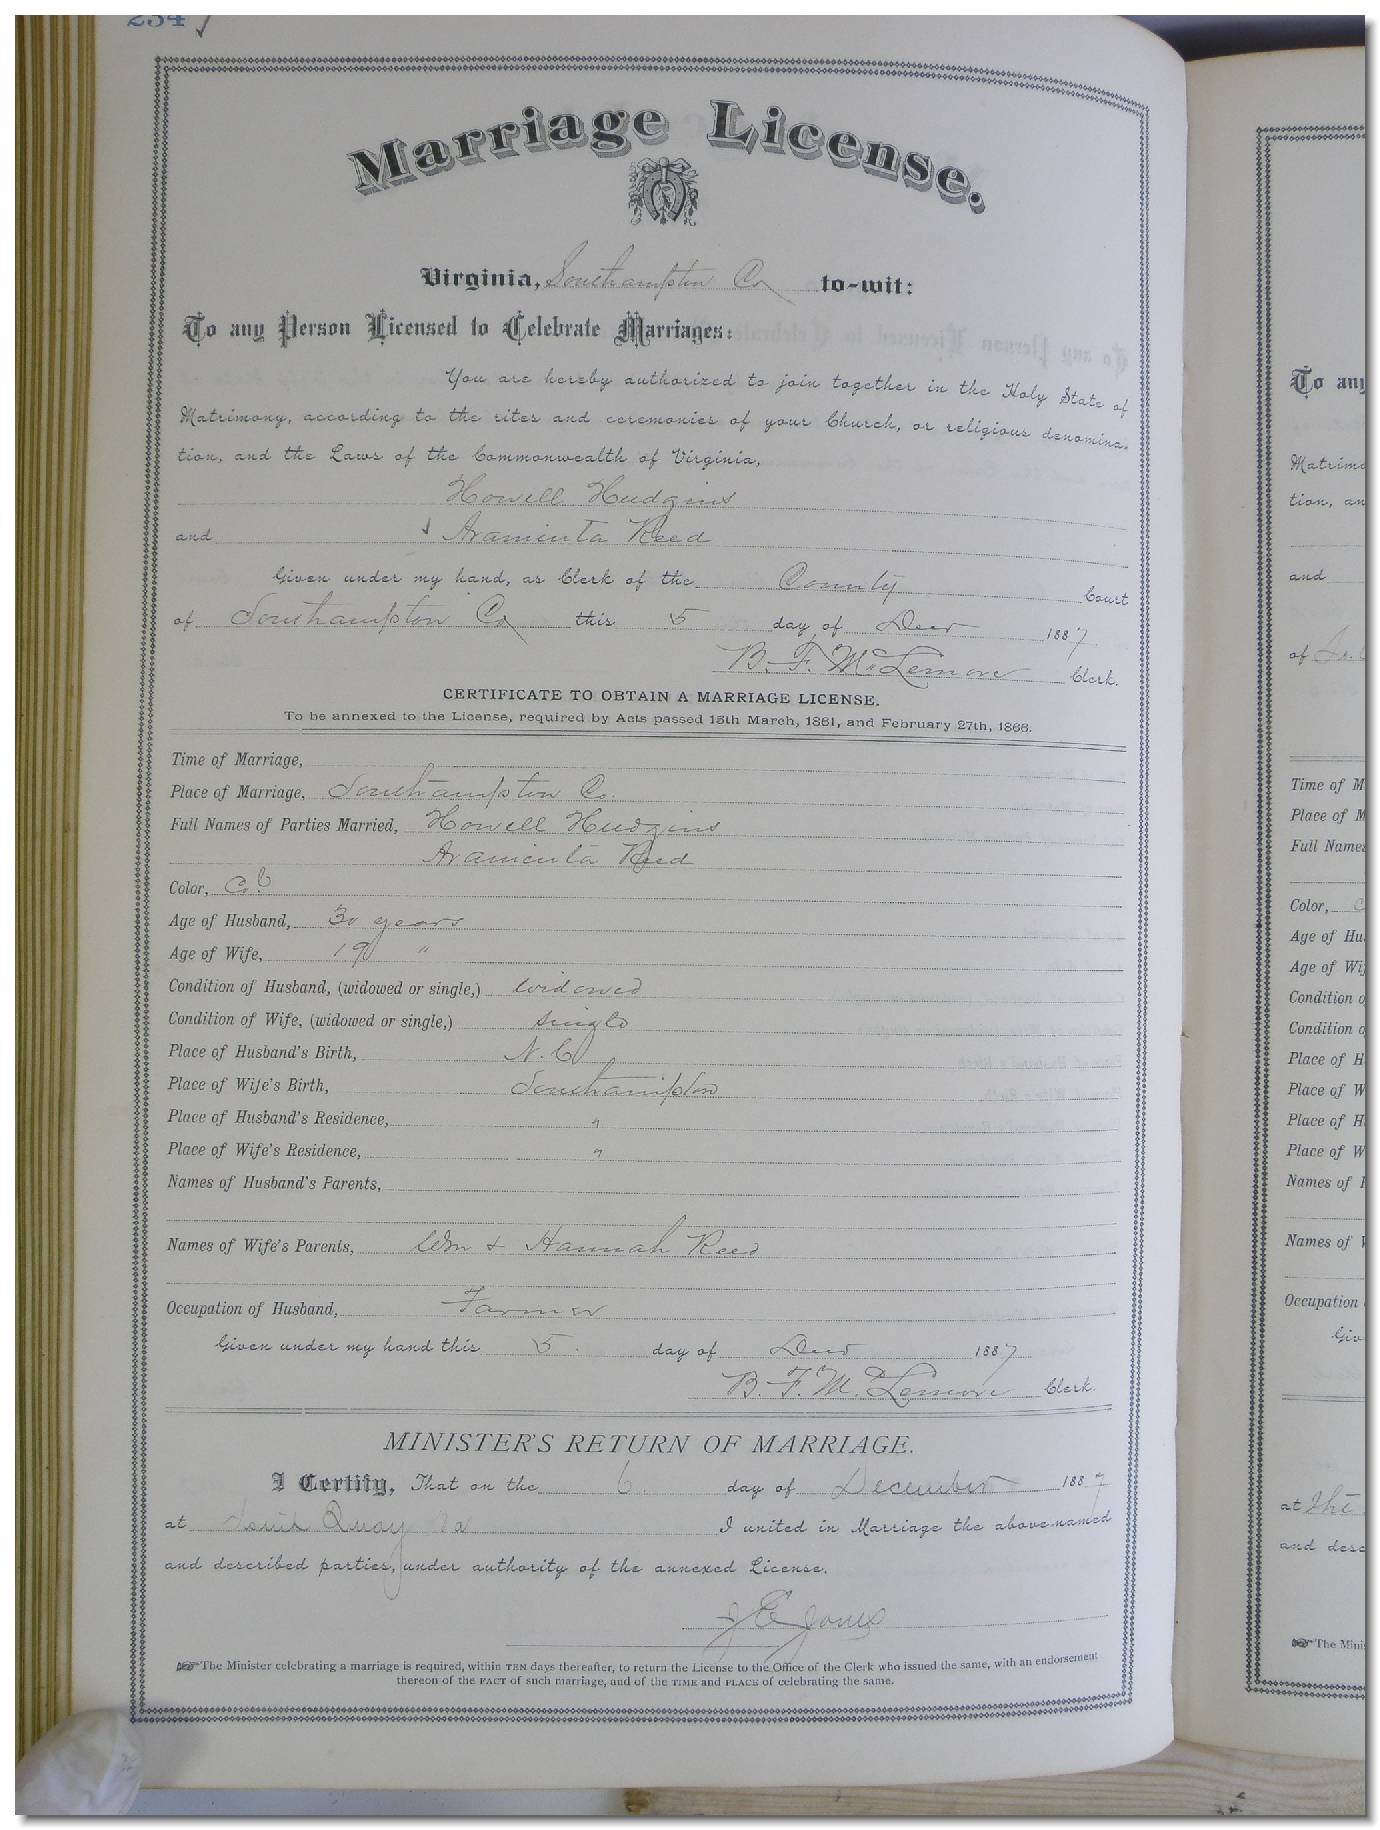 234
Marriage License.
Virginia, Southampton Co to-wit:
To any Person Licensed to Celebrate Marriages:
You are hereby authorized to join together in the Holy State of
Matrimony, according to the rites and ceremonies of your Church, or religious denomina-
tion, and the Laws of the Commonwealth of Virginia,
Howell Hudgins
and Araminta Reed
Given under my hand, as Clerk of the County Court
of Southampton Co this 5 day of Decr 1887
B. F. McLemore Clerk.
CERTIFICATE TO OBTAIN A MARRIAGE LICENSE.
To be annexed to the License, required by Acts passed 15th March, 1861, and February 27th, 1866.
Time of Marriage,
Place of Marriage, Southampton Co.
Full Names of Parties Married, Howell Hudgins
Araminta Reed
Color,
Age of Husband, 30 years
Age of Wife, 19 "
Condition of Husband, (widowed or single,) widowed
Condition of Wife, (widowed or single,) single
Place of Husband's Birth, N. C
Place of Wife's Birth, Southampton
Place of Husband's Residence, "
Place of Wife's Residence, "
Names of Husband's Parents,
Names of Wife's Parents, Wm & Hannah Reed
Occupation of Husband, Farmer
Given under my hand this 5 day of Decr 1887
B. F. McLemore Clerk.
MINISTER'S RETURN OF MARRIAGE.
I Certify, That on the 6 day of December 1887
at South Quay Va I united in Marriage the above-named
and described parties, under authority of the annexed License.
J E Jones
☞ The Minister celebrating a marriage is required, within TEN days thereafter, to return the License to the Office of the Clerk who issued the same, with an endorsement
thereon of the FACT of such marriage, and of the TIME and PLACE of celebrating the same.
To any
Matrimo
tion, an
and
of
Time of M
Place of M
Full Names
Color,
Age of Hu
Age of Wif
Condition o
Condition o
Place of H
Place of W
Place of H
Place of W
Names of H
Names of W
Occupation
Giv
at the
and desc
☞ The Mini